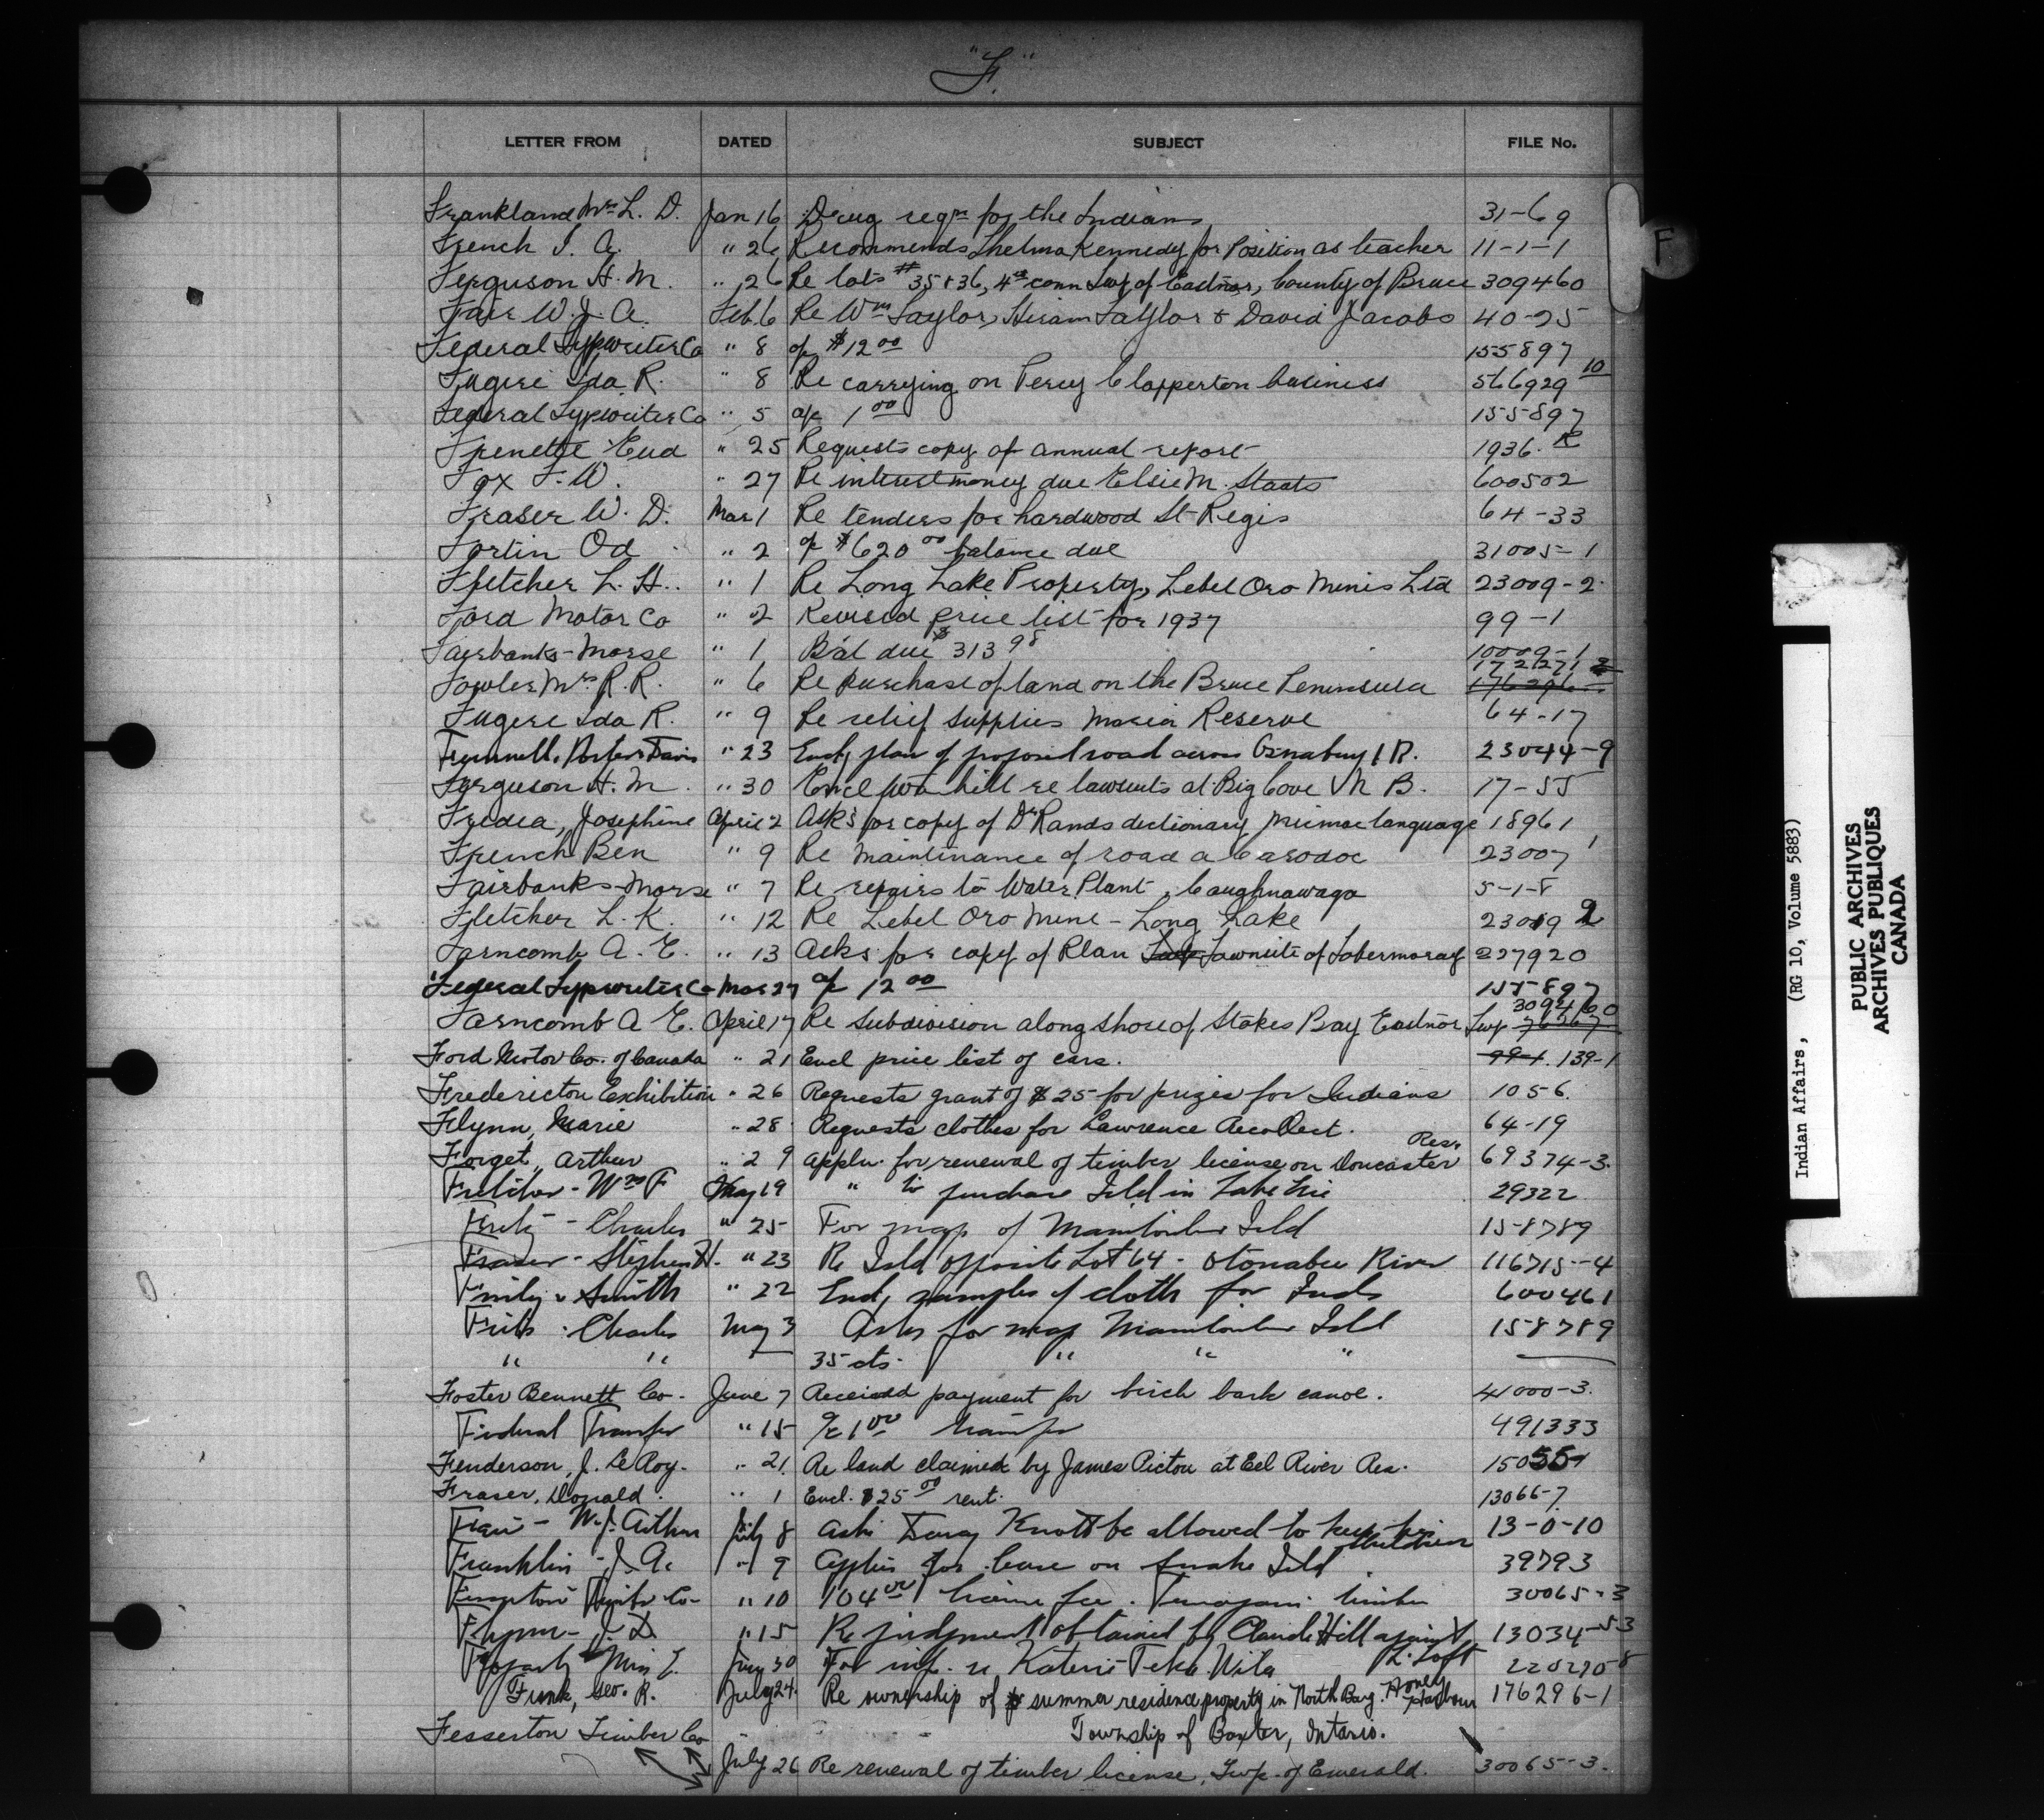 "F."
LETTER FROM DATED SUBJECT FILE No.
Frankland Mrs L. D. Jan 16 Drug reqn for the Indians 31-69
French I. A. " 26 Recommends Thelma Kennedy for Position as teacher 11-1-1
F
Ferguson H. M. " 26 Re lots #35 & 36, 4th conn Twp of Eastnor, County of Bruce 309460
Fair W. J. A. Feb. 6 Re Wm Taylor, Hiram Taylor & David Jacobs 40-25
Federal Typwriter Co " 8 of $12 00 155897
Fugere Ida R. " 8 Re carrying on Percy Clapperton business 566929 10
Federal Typwriter Co " 5 a/c 1 00 155897
Frenette Eud " 25 Requests copy of annual report 1936. R
Fox F. W. " 27 Re interest money due Elsie M. Staats 600502
Fraser W. D. Mar 1 Re tenders for hardwood St Regis 64-33
Fortin Od " 2 of $620 00 balance due 31005-1
Fletcher L. H. " 1 Re Long Lake Property, Lebel Oro Mines Ltd 23009-2
Ford Motor Co " 2 Revised price list for 1937 99-1
Fairbanks-Morse " 1 Bal due $313 98 10009-1
Fowler Mrs R. R. " 6 Re Purchase of land on the Bruce Peninsula 172271
Fugere Ida R. " 9 Re relief supplies Maria Reserve 64-17
Davis " 23 Encl, plan of proposed road across I R. 23044-9
Ferguson H. M. " 30 Encl bill re lawsuits at Big Cove N B. 17-55
Josephine April 2 Asks for copy of Dr Rands dictionary Micmac language 18961
French Ben " 9 Re Maintinance of road a Carodoc 23007 1
Fairbanks-Morse " 7 Re repairs to Water Plant, Caughnawaga 5-1-8
Fletcher L. K. " 12 Re Lebel Oro Mine - Long Lake 23019 2
Farncomb A. E. " 13 Asks for copy of Plan Townsite of Tobermoray 227920
Federal Typwriter Co Mar 27 of 12 00 155897
Farncomb A E. April 17 Re Subdivision along Shore of Stokes Bay Eastnor Twp 309460
Ford Motor Co. of Canada " 21 Encl price list of cars. 99-1. 139-1
Fredericton Exhibition " 26 Requests grant of $25 for prizes for Indians 1056.
Flynn, Marie " 28 Requests clothes for Lawrence Recollect. 64-19
Forget, Arthur " 29 Appln. for renewal of timber license on Doncaster Res. 69374-3.
Fletcher - Wm F May 19 " to purchase Isld in Lake Erie 29322
Charles " 25 For map of Manitoulin Isld 158789
Fraser - Stephen H. " 23 Re Isld opposite Lot 64 - Otonabee River 116715-4
Smith " 22 Encl, samples of cloth for Inds 600461
Charles May 3 Asks for map Manitoulin Isld 158789
" " 35 cts. " " "
Foster Bennett Co. June 7 Received payment for birch bark canoe. 41000-3.
Federal Transfer " 15 a/c 1 00 transfer 491333
Fenderson, J. Le Roy. " 21. Re land claimed by James Pictou at Eel River Res.
Fraser, Donald. " 1 Encl. $25 00 rent. 13066-7.
Fair - W. J. Arthur July 8 Asks Knott be allowed to keep his children 13-0-10
Franklin - J. A. " 9 Applies for lease on Snake Isld 39793
" 10 104 00 license fee. Temagami timber 30065-3
Flynn - J. D " 15 Re judgment obtained by Claude Hill against L. Loft 13034-53
Miss June 30 For inf. re Kateri Teka Wita 220270-8
Funk, Geo. R. July 24. Re ownership of summer residence property in North Bay. Honey Harbour 176296-1
Township of Baxter, Ontario.
Fesserton Timber Co
July 26 Re renewal of timber license, Twp. of Emerald. 30065-3.
Indian Affairs, (RG 10, Volume 5883)
PUBLIC ARCHIVES
ARCHIVES PUBLIQUES
CANADA